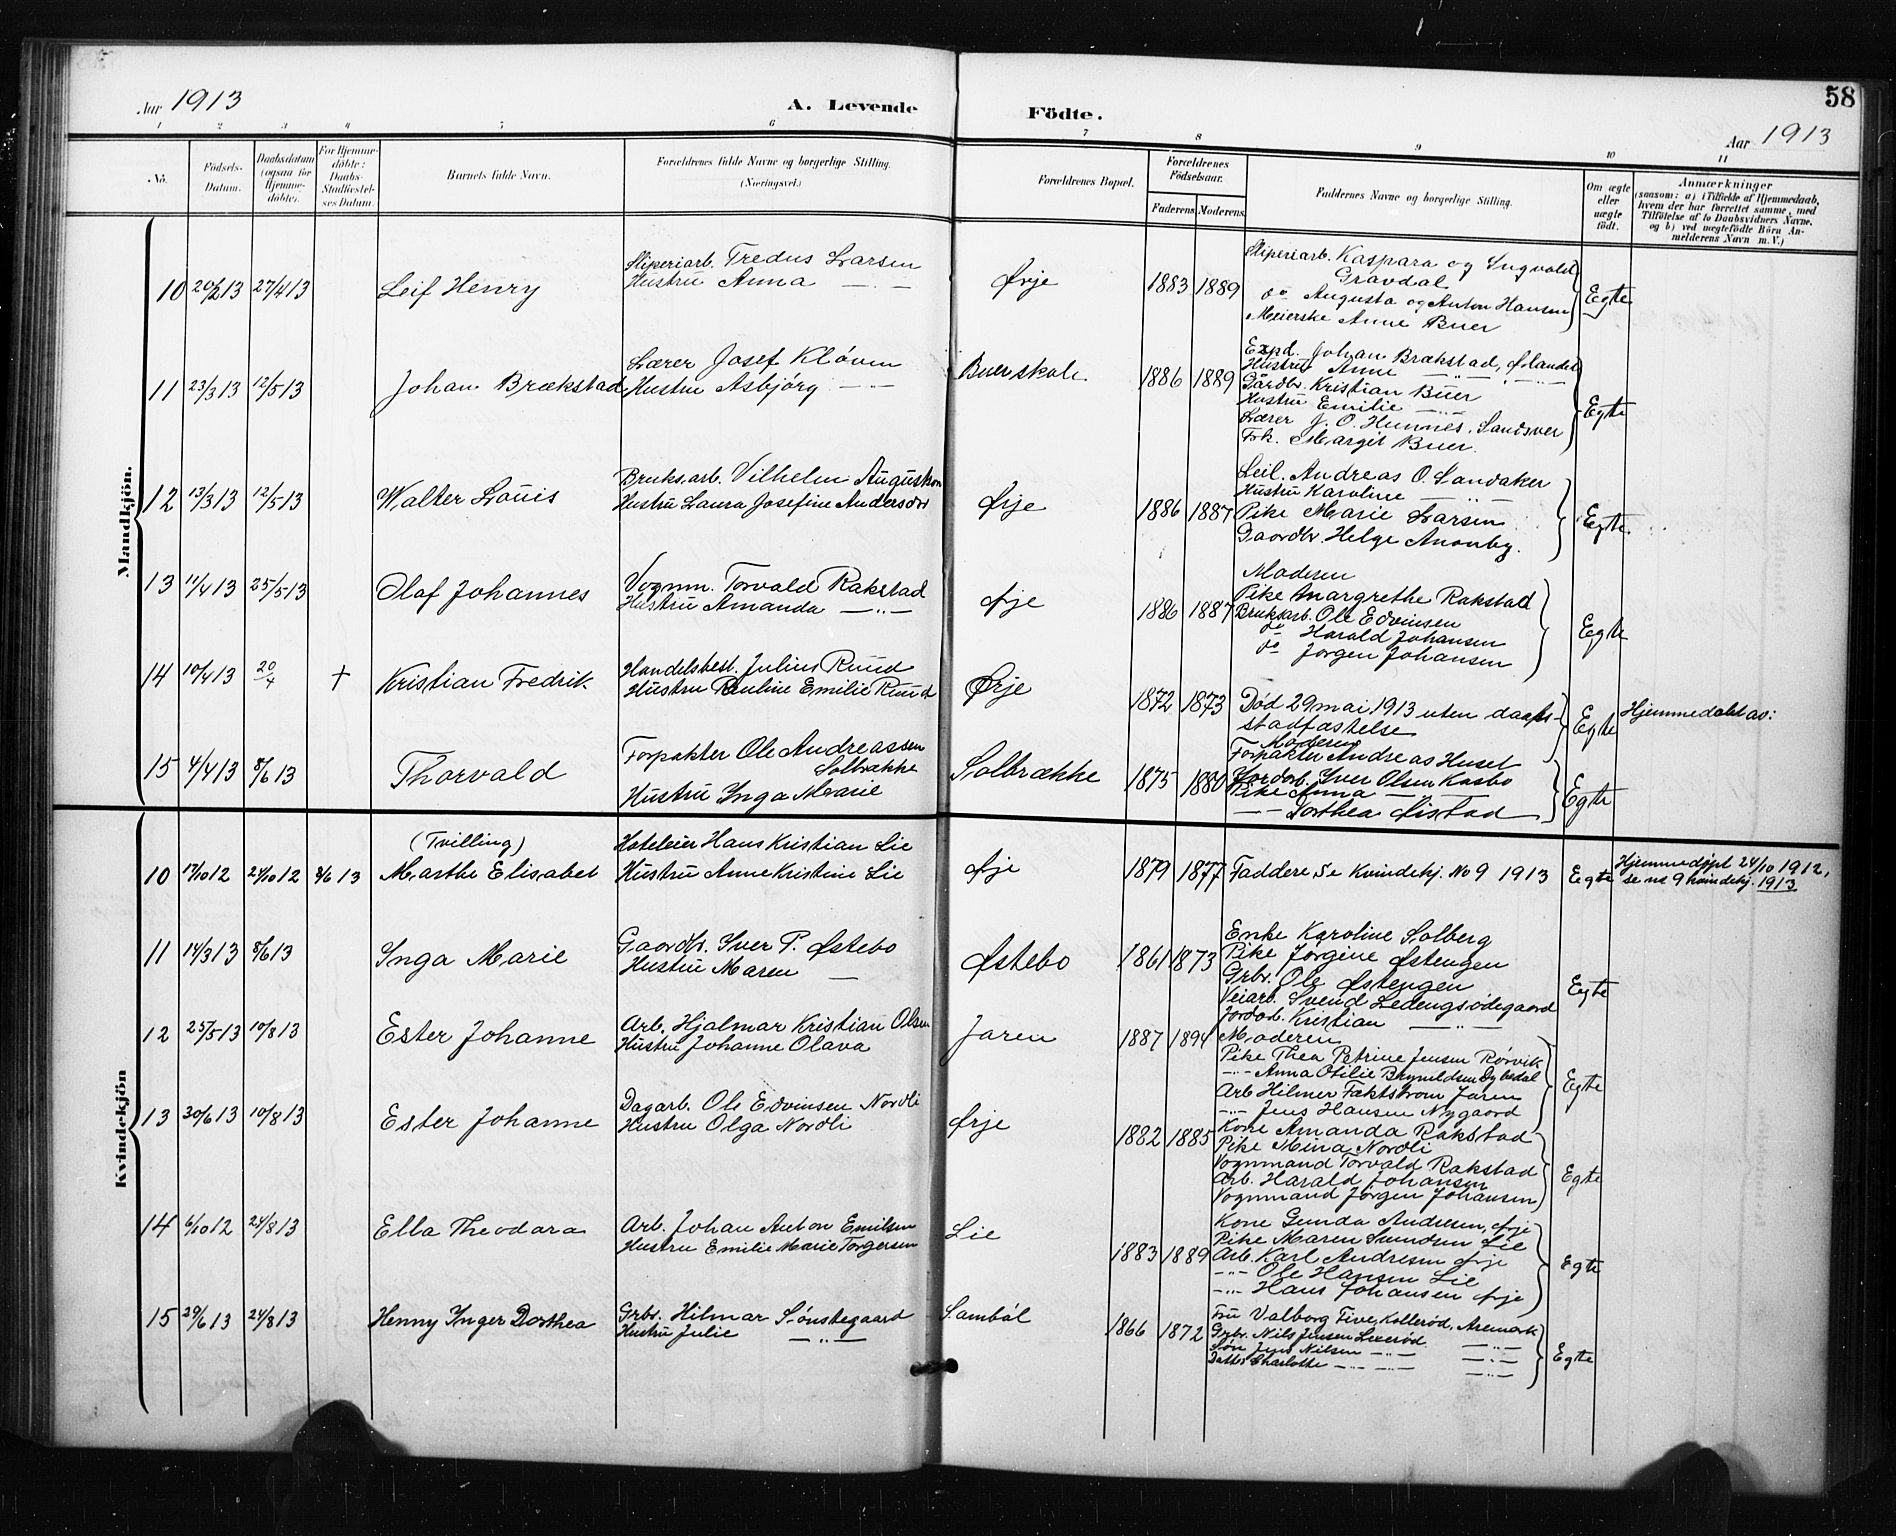 Aar 1913
A. Levende Födte.
58
Aar 1913
1 2 3 4 5 6 7 8 9 10 11
No.
Födsels-Datum.
Daabsdatum (ogsaa for Hjemme-döbte).
For Hjemme-döbte: Daabs-Stadfæstelses Datum.
Barnets fulde Navn.
Forældrenes fulde Navne og borgerlige Stilling. (Næringsvei.)
Forældrenes Bopæl.
Forældrenes Födselsaar.
Faderens Moderens
Faddernes Navne og borgerlige Stilling.
Om ægte eller uægte födt.
Anmærkninger
(saasom: a) i Tilfælde af Hjemmedaab,
hvem der har forrettet samme, med
Tilföielse af to Daabsvidners Navne,
og b) ved uægtefödte Börn An-
melderens Navn m. V.)
Mandkjön.
10 20/2 13 27/4 13 Leif Henry
Sliperiarb. Fredus Larsen
Hustru Anna —"—
Ørje 1883 1889
Sliperiarb. Kaspara og Ingvald
Gravdal
do Augusta og Anton Hansen
Meierske Anne Buer
Egte
11 23/3 13 12/5 13 Johan Brækstad
Lærer Josef Kløven
Hustru Asbjörg —"—
Buer skole 1886 1889
Expd. Johan Brækstad,
Hustru Anne —"—
Gårdbr. Kristian Buer
Hustru Emilie —"—
Lærer J. O. Hunnes, Sandsver
Frk. Margit Buer
Egte
12 13/3 13 12/5 13 Walter Louis
Bruksarb. Vilhelm Augustson
Hustru Laura Josefine Anderson
Ørje 1886 1887
Leil. Andreas O. Sandaker
Hustru Karoline —"—
Pike Marie Larsen
Gaardbr. Helge Anonby.
Egte
13 11/4 13 25/5 13 Olaf Johannes
Vognm. Torvald Rakstad
Hustru Amanda —"—
Ørje 1886 1887
Moderen
Pike Margrethe Rakstad
Bruksarb. Ole Edvinsen
do Harald Johansen
do Jørgen Johansen
Egte
14 10/4 13 20/4 † Kristian Fredrik
Handelsbest. Julius Ruud
Hustru Pauline Emilie Ruud
Ørje 1872 1873
Død 29 mai 1913 uten daabs-
stadfæstelse
Egte
Hjemmedøbt av:
15 4/4 13 8/6 13 Thorvald
Forpakter Ole Andreassen
Solbrække
Hustru Inga Marie
Solbrække 1875 1880
Moderen
Forpakter Andreas Huset
Jordbr. Iver Olsen Kasbo
Pike Anna —
—"— Dorthea Øistad
Egte
Kvindekjön
10 17/10 12 24/10 12 8/6 13
(Tvilling)
Marthe Elisabet
Hoteleier Hans Kristian Lie
Hustru Anne Kristine Lie
Ørje 1879 1877
Faddere, Se Kvindekj. No 9 1913
Egte
Hjemmedøpt 24/10 1912,
se no 9 kvindekj. 1913
11 14/3 13 8/6 13 Inga Marie
Gaardbr. Iver P. Østebo
Hustru Maren —
Østebo 1861 1873
Enke Karoline Solberg
Pike Jørgine Østengen
Grbr. Ole Østengen
Veiarb. Svend Ledengsødegaard
Jordarb. Kristian —"—
Egte
12 25/5 13 10/8 13 Ester Johanne
Arb. Hjalmar Kristian Olsen
Hustru Johanne Olava
Jaren 1887 1894
Moderen
Pike Thea Petrine Jensen Rørvik
—"— Anna Otilie Brynildsen Dybedal
Arb Hilmer Faktstrom Jaren
—"— Jens Hansen Nygaard
Egte
13 30/6 13 10/8 13 Ester Johanne
Dagarb. Ole Edvinsen Nordli
Hustru Olga Nordli
Ørje 1882 1885
Kone Amanda Rakstad
Pike Mina Nordli
Vognmand Torvald Rakstad
Arb. Harald Johansen
Vognmand Jørgen Johansen
Egte
14 6/10 12 24/8 13 Ella Theodara
Arb. Johan Anton Emilsen
Hustru Emilie Marie Torgersen
Lie 1883 1889
Kone Gunda Andresen, Ørje
Pike Maren Svendsen Lie
Arb. Karl Andresen Ørje
—"— Ole Hansen Lie
—"— Hans Johansen Ørje
Egte
15 29/6 13 24/8 13 Henny Inger Dorthea
Grbr. Hilmar Sønstegaard
Hustru Julie —"—
Sambøl 1866 1872
Fru Valborg Five, Kollerød, Aremark
Grbr. Nils Jensen Lexerød —"—
Søn Jens Nilsen —"— —"—
Datter Charlotte —"— —"—
Egte